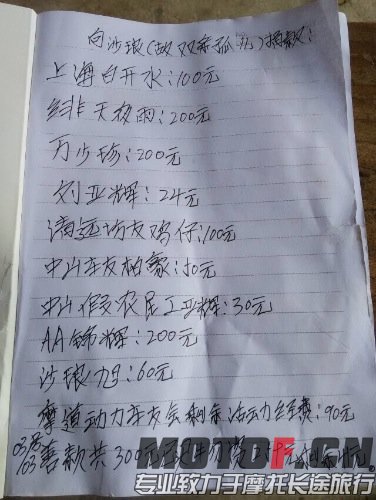 向沙琅(故双亲孤儿)捐款:
上海白开水:100元
绯天夜雨:200元
万少珍:200元
刘亚辉:24元
清远坊友鸡仔:100元
中山车友柏豪:50元
中山假农民工亚辉:30元
AA锦辉:200元
沙琅旭:60元
摩道动力车友会剩余活动经费:90元
善款共300元
MOTOF.CN
专业致力于摩托长途旅行